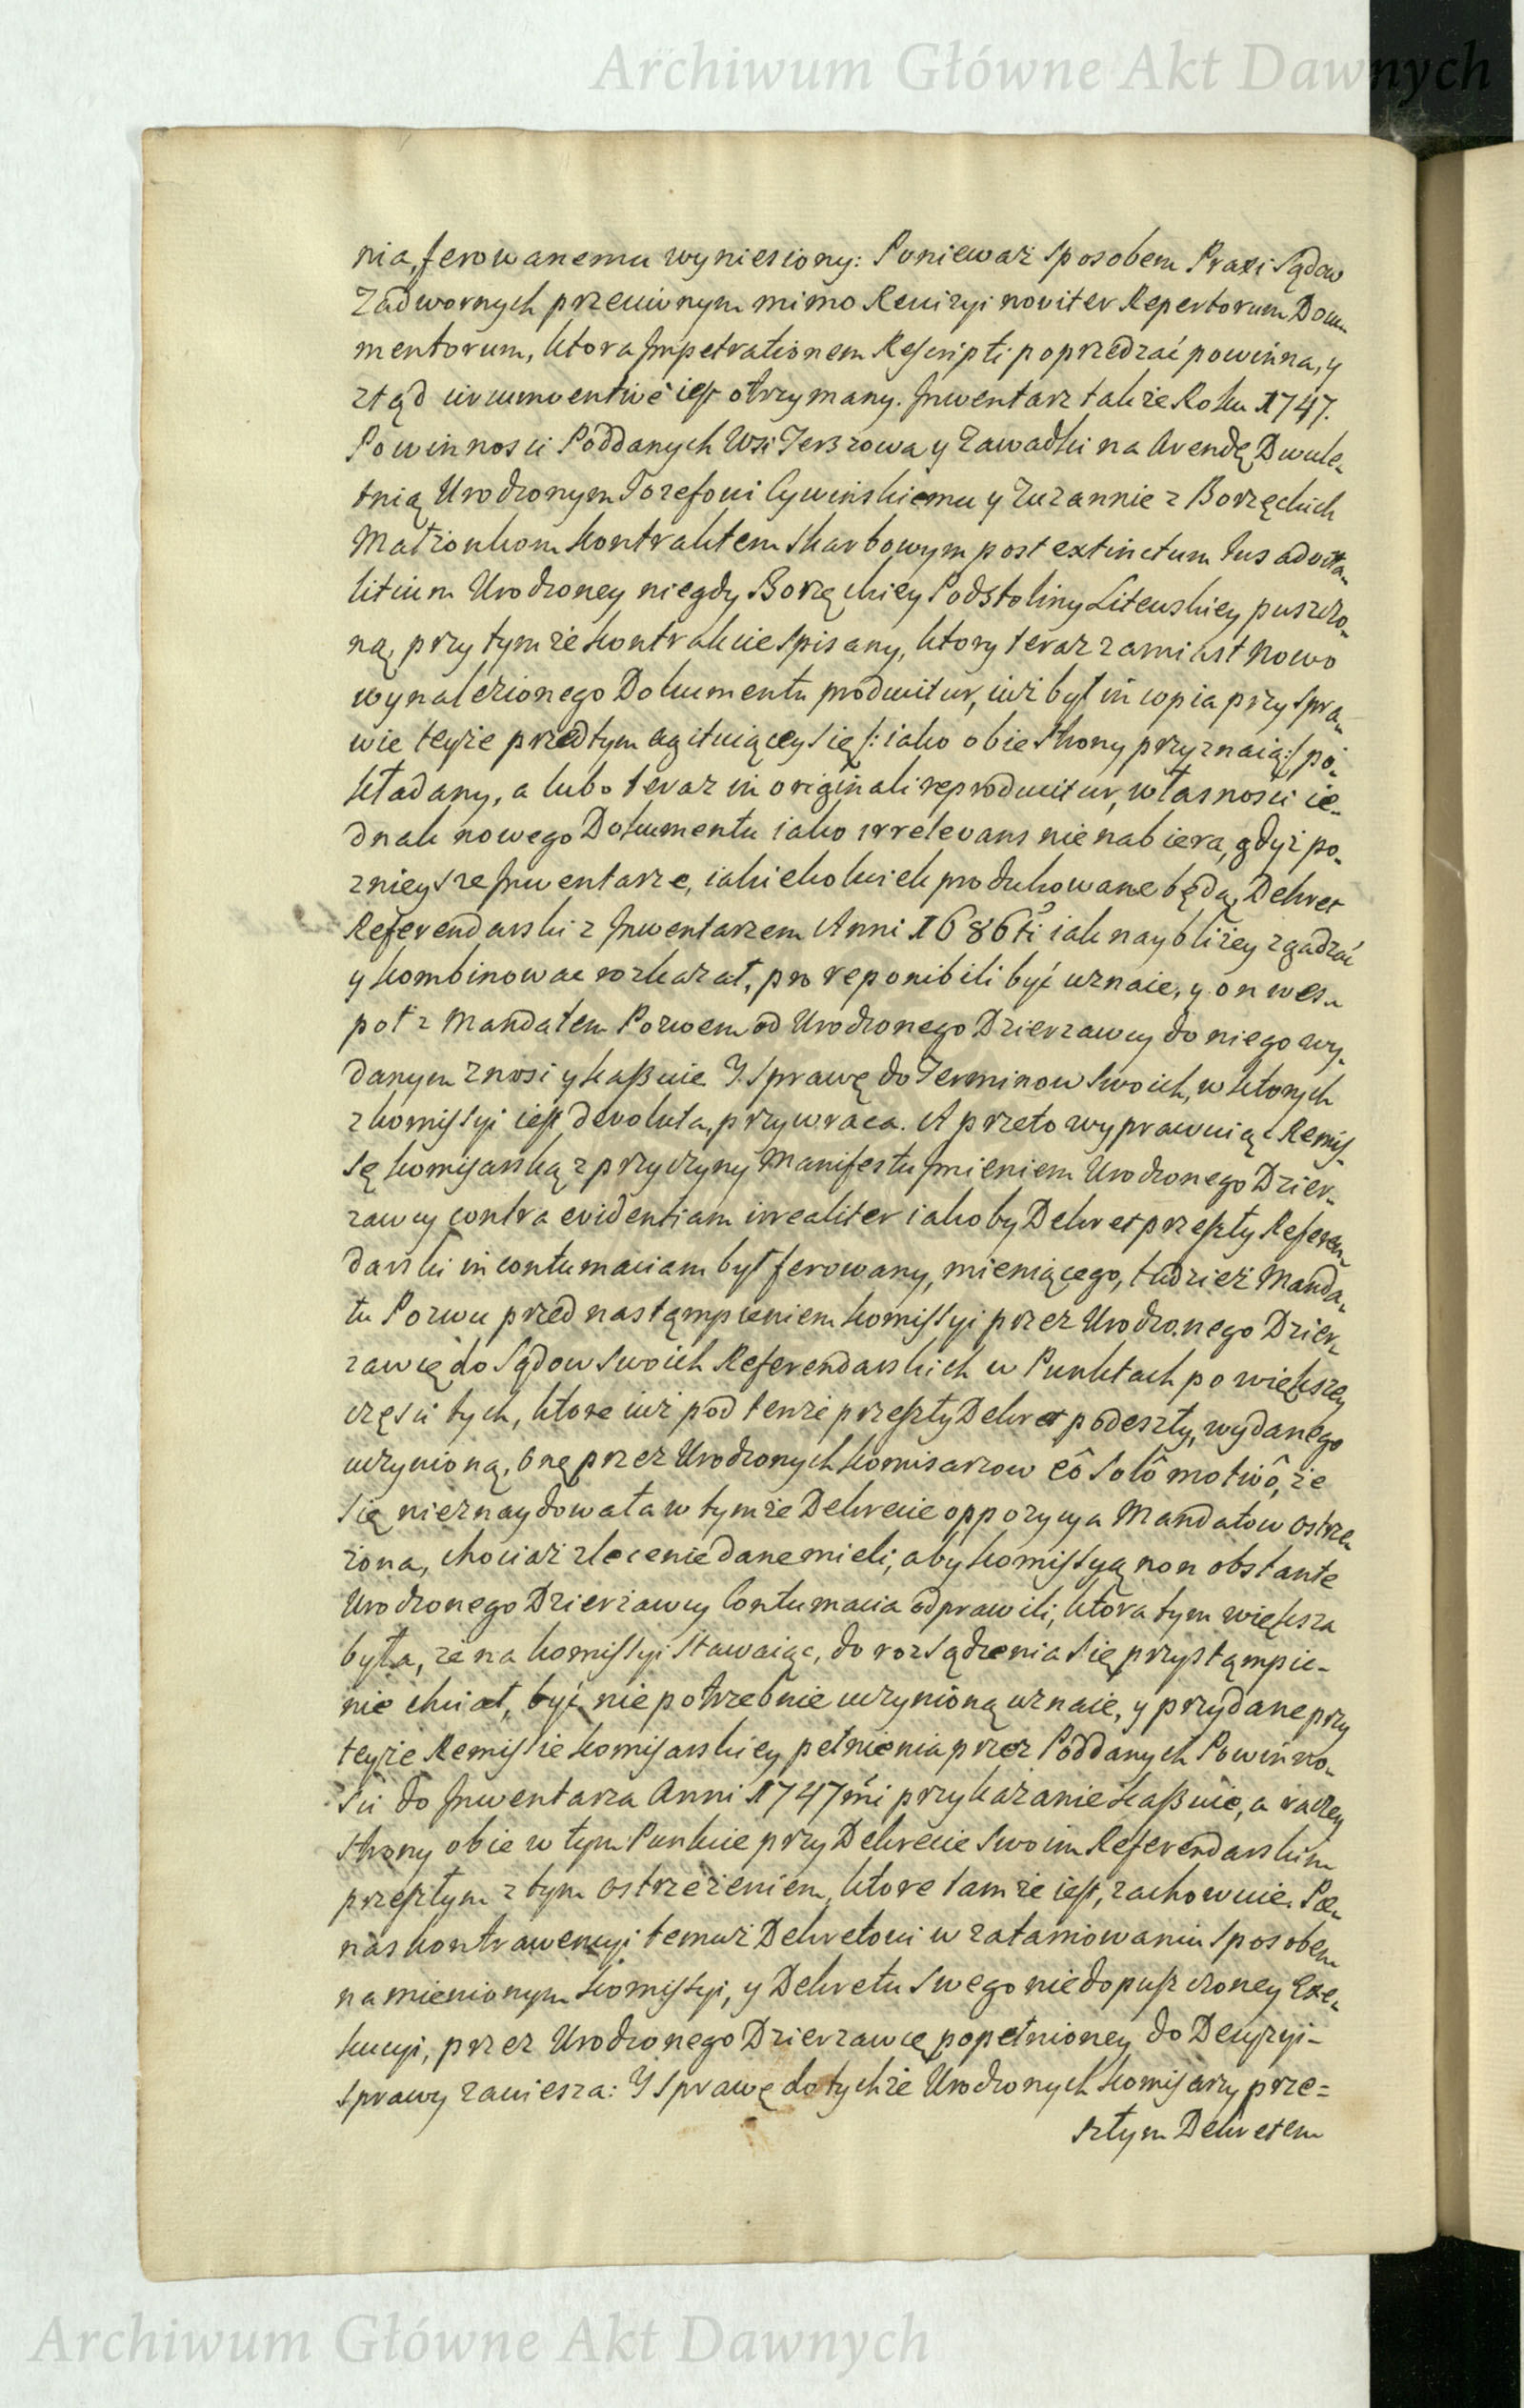 Archiwum Główne Akt Dawnych
nia, ferowanemu wyniesiony: Ponieważ sposobem Praxi Sądow
Zadwornych przeciwnym mimo Rewizyi noviter Repertorum Docu-
mentorum, ktora Impetrationem Rescripti poprzedzać powinna, y
ztąd circumventivè iest otrzymany. Inwentarz także Roku 1747.
Powinnosci Poddanych Wsi Jerzowa y Zawadki na Arendę Dwule-
tnią Urodzonym Jozefowi Cywinskiemu y Zuzannie z Borzęckich
Małżonkom Kontraktem Skarbowym post extinctum Jus advita-
litium Urodzoney niegdy Borzęckiey Podstoliny Litewskiey puszczo-
ną, przy tymże Kontrakcie spisany, ktory teraz zamiast nowo
wynalezionego Dokumentu producitur, iuż był in copia przy spra-
wie teyże przedtym agituiącey się /: iako obie Strony przyznaią :/ po-
kładany, a lubo teraz in originali reproducitur, własnosci ie-
dnak nowego Dokumentu iako irrelevans nie nabiera, gdyż po-
znieysze Inwentarze, iakiekolwiek produkowane będą, Dekret
Referendarski z Inwentarzem Anni 1686ti iak naybliżey zgadzać
y kombinowac rozkazał, pro reponibili być uznaie, y on wes-
poł z Mandatem Pozwem od Urodzonego Dzierzawcy do niego wy-
danym znosi y kaßuie. Y Sprawę do Terminow swoich, w ktorych
z Komissyi iest devoluta, przywraca. A przeto wyprawuiąc Remis-
sę Komisarską z przyczyny Manifestu Imieniem Urodzonego Dzier-
zawcy contra evidentiam irrealiter iakoby Dekret przeszły Referen-
darski in contumaciam był ferowany, mieniącego, tudzież Manda-
tu Pozwu przed nastąmpieniem Komissyi przez Urodzonego Dzier-
zawcę do Sądow swoich Referendarskich w Punktach po większey
części tych, ktore iuż pod tenże przeszły Dekret podeszły, wydanego
uczynioną, onę przez Urodzonych Komisarzow eô solô motivô, że
się nieznaydowała w tymże Dekrecie oppozycya Mandatow ostrze-
żona, chociaż zlecenie dane mieli, aby Komissyą non obstante
Urodzonego Dzierżawcy Contumacia odprawili, ktora tym większa
była, że na Komissyi stawaiąc, do rozsądzenia się przystąmpic-
nie chciał, być niepotrzebnie uczynioną uznaie, y przydane przy
teyże Remissie Komisarskiey pełnienia przez Poddanych Powinno-
sci do Inwentarza Anni 1747mi przykazanie kaßuie, a raczey
Strony obie w tym Punkcie przy Dekrecie swoim Referendarskim
przeszłym z tym ostrzeżeniem, ktore tamże iest, zachowuie. Pœ-
nas kontrawencyi temuż Dekretowi w zatamowaniu sposobem
namienionym Komissyi, y Dekretu swego niedopuszczoney Exe-
kucyi, przez Urodzonego Dzierzawcę popełnioney do Decyzyi-
sprawy zawiesza: Y sprawę do tychże Urodzonych Komisarzy prze=
szłym Dekretem
Archiwum Główne Akt Dawnych